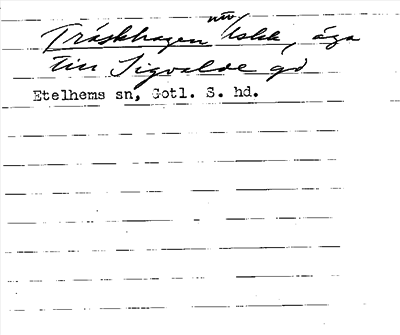 nuv.
Träskhagen Askk, äga
till Sigvalde gd
Etelhems sn, Gotl. S. hd.